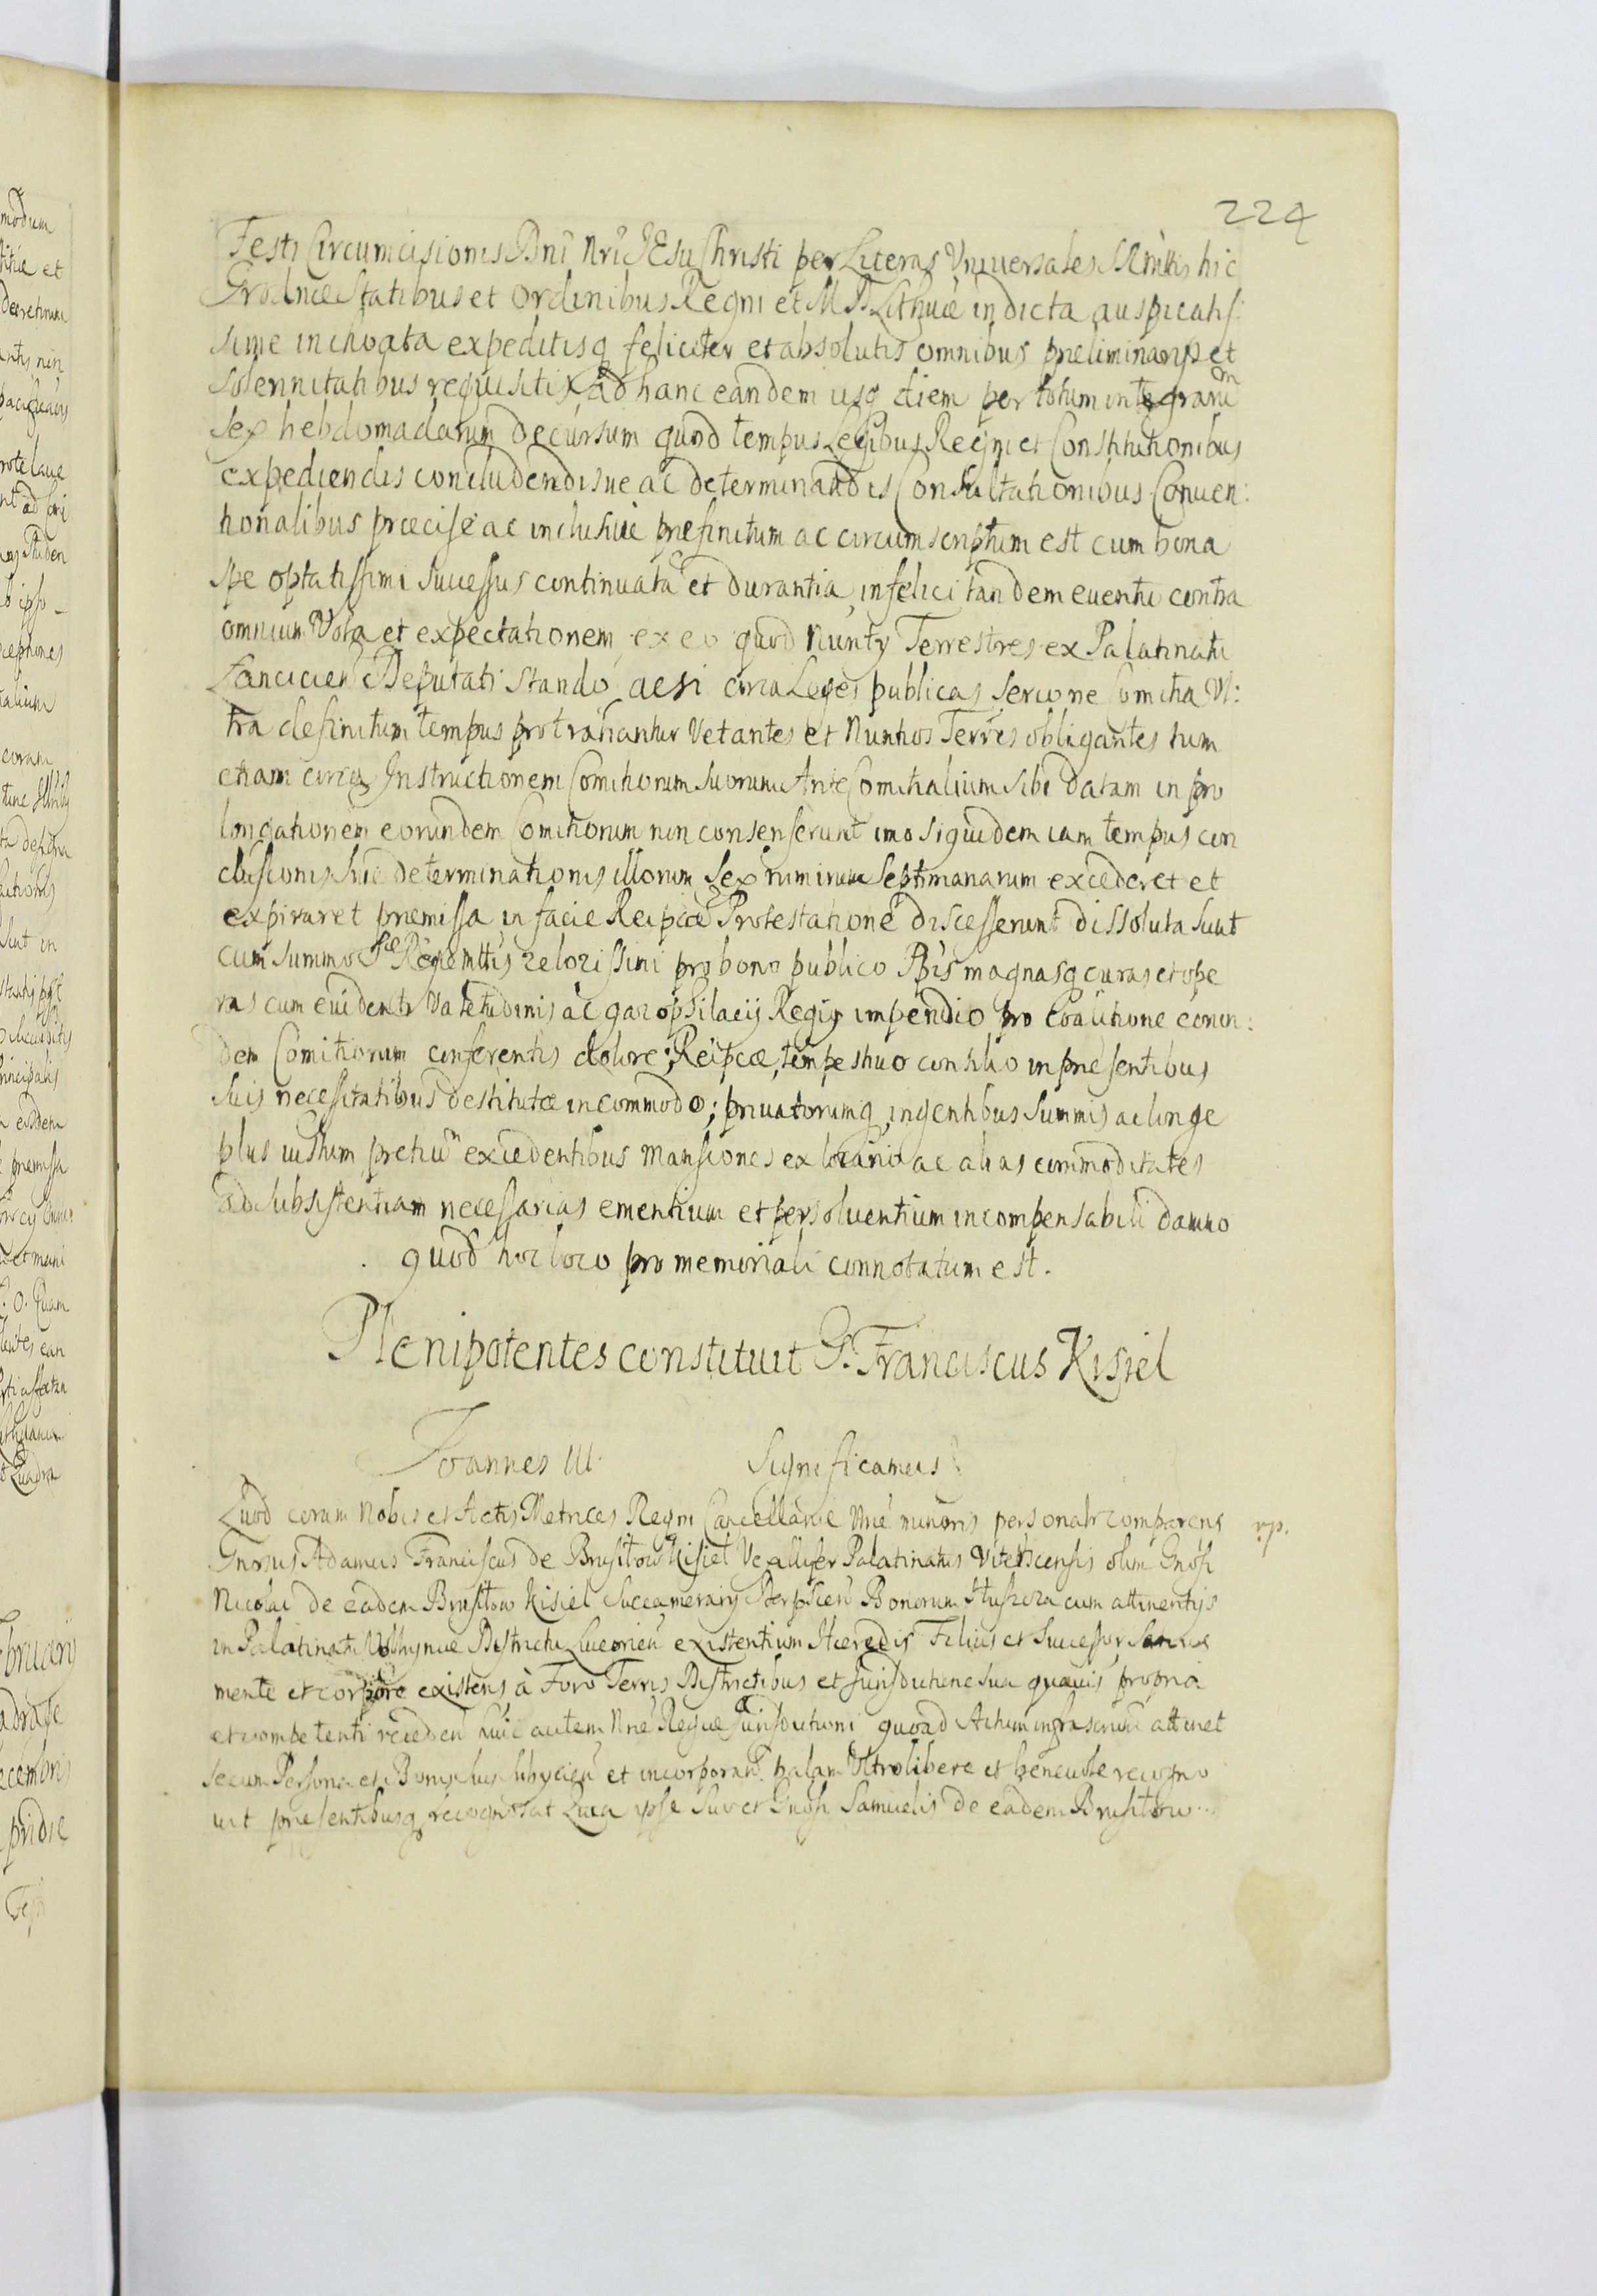 224
Festi Circumcisionis Dni Nri JEsu Christi per Literas Vniuersales SRMttis hic
Grodnæ Statibus et Ordinibus Regni et M D Lithuæ indicta auspicatis:
sime inchoata expeditisq feliciter et absolutis omnibus præliminarys et
Solennitatibus requisitis ad hanc eandem usq diem per totum integrarum
Sex hebdomadarum decursum quod tempus Legibus Regni et Constitutionibus
expediendis concludendisue ac determinandis Consultationibus Conuen:
tionalibus præcisè ac inclusiue præfinitum ac circumscriptum est cum bona
spe optatissimi successus continuata et durantia, infelici tandem euentu contra
omnium Vota et expectationem, ex eo quod Nunty Terrestres ex Palatinatu
Lancicien Deputati stando acsi circa Leges publicas serio ne Comitia Vl:
tra definitum tempus protrahantur Vetantes et Nuntios Terres obligantes tum
etiam circa Instructionem Comitiorum suorum AnteComitialium sibi datam in pro
longationem eorundem Comitiorum non consenserunt imo siquidem iam tempus con
clusionis siue determinationis illorum Sex nimirum Septimanarum excederet et
expiraret præmissa in facie Reipcæ Protestatione discesserunt dissoluta sunt
cum summo Sæ Regiæ Mttis zelozissimi pro bono publico Pris magnasq curas et ope
ras cum euidenti Valetudinis ac gazophilacij Regij impendio pro coalitione eorun:
dem Comitiorum conferentis dolore; Reipcæ, tempestiuo consilio in præsentibus
suis necessitatibus destitutæ incommodo; priuatorumq, ingentibus summis ac longe
plus iustum pretiu excedentibus Mansiones ex locario ac alias commoditates
ad subsistentiam necessarias ementium et persoluentium incompensabili damno
quod hoc loco pro memoriali connotatum est.
Plenipotentes constituit G. Franciscus Kisiel
Joannes III. Significamus
Quod coram Nobis et Actis Metrices Regni Cancellariæ Nræ minoris personalr comparens
Gnrsus Adamus Franciscus de Brusitow Kisiel Vexillifer Palatinatus Vitebscensis olim Gnosi
Nicolai de eadem Brusitow Kisiel Succamerarij Derpscen Bonorum cum attinentijs
in Palatinatu Volhyniæ Districtu Luceorien existentium Hæredis Filius et Successor Sanus
mente et corpore existens à Foro Terris Districtibus et Jurisdictione sua quauis propria
et competenti receden huic autem Nræ Regiæ Jurisdictioni quoad Actum infrascriptu attinet
secum Persona et Bonis suis subijcien et incorporan palam Vltro libere et beneuole recogno
uit præsentibusq recognoscat Quia ipse suo et Gnosi Samuelis de eadem Brusitow